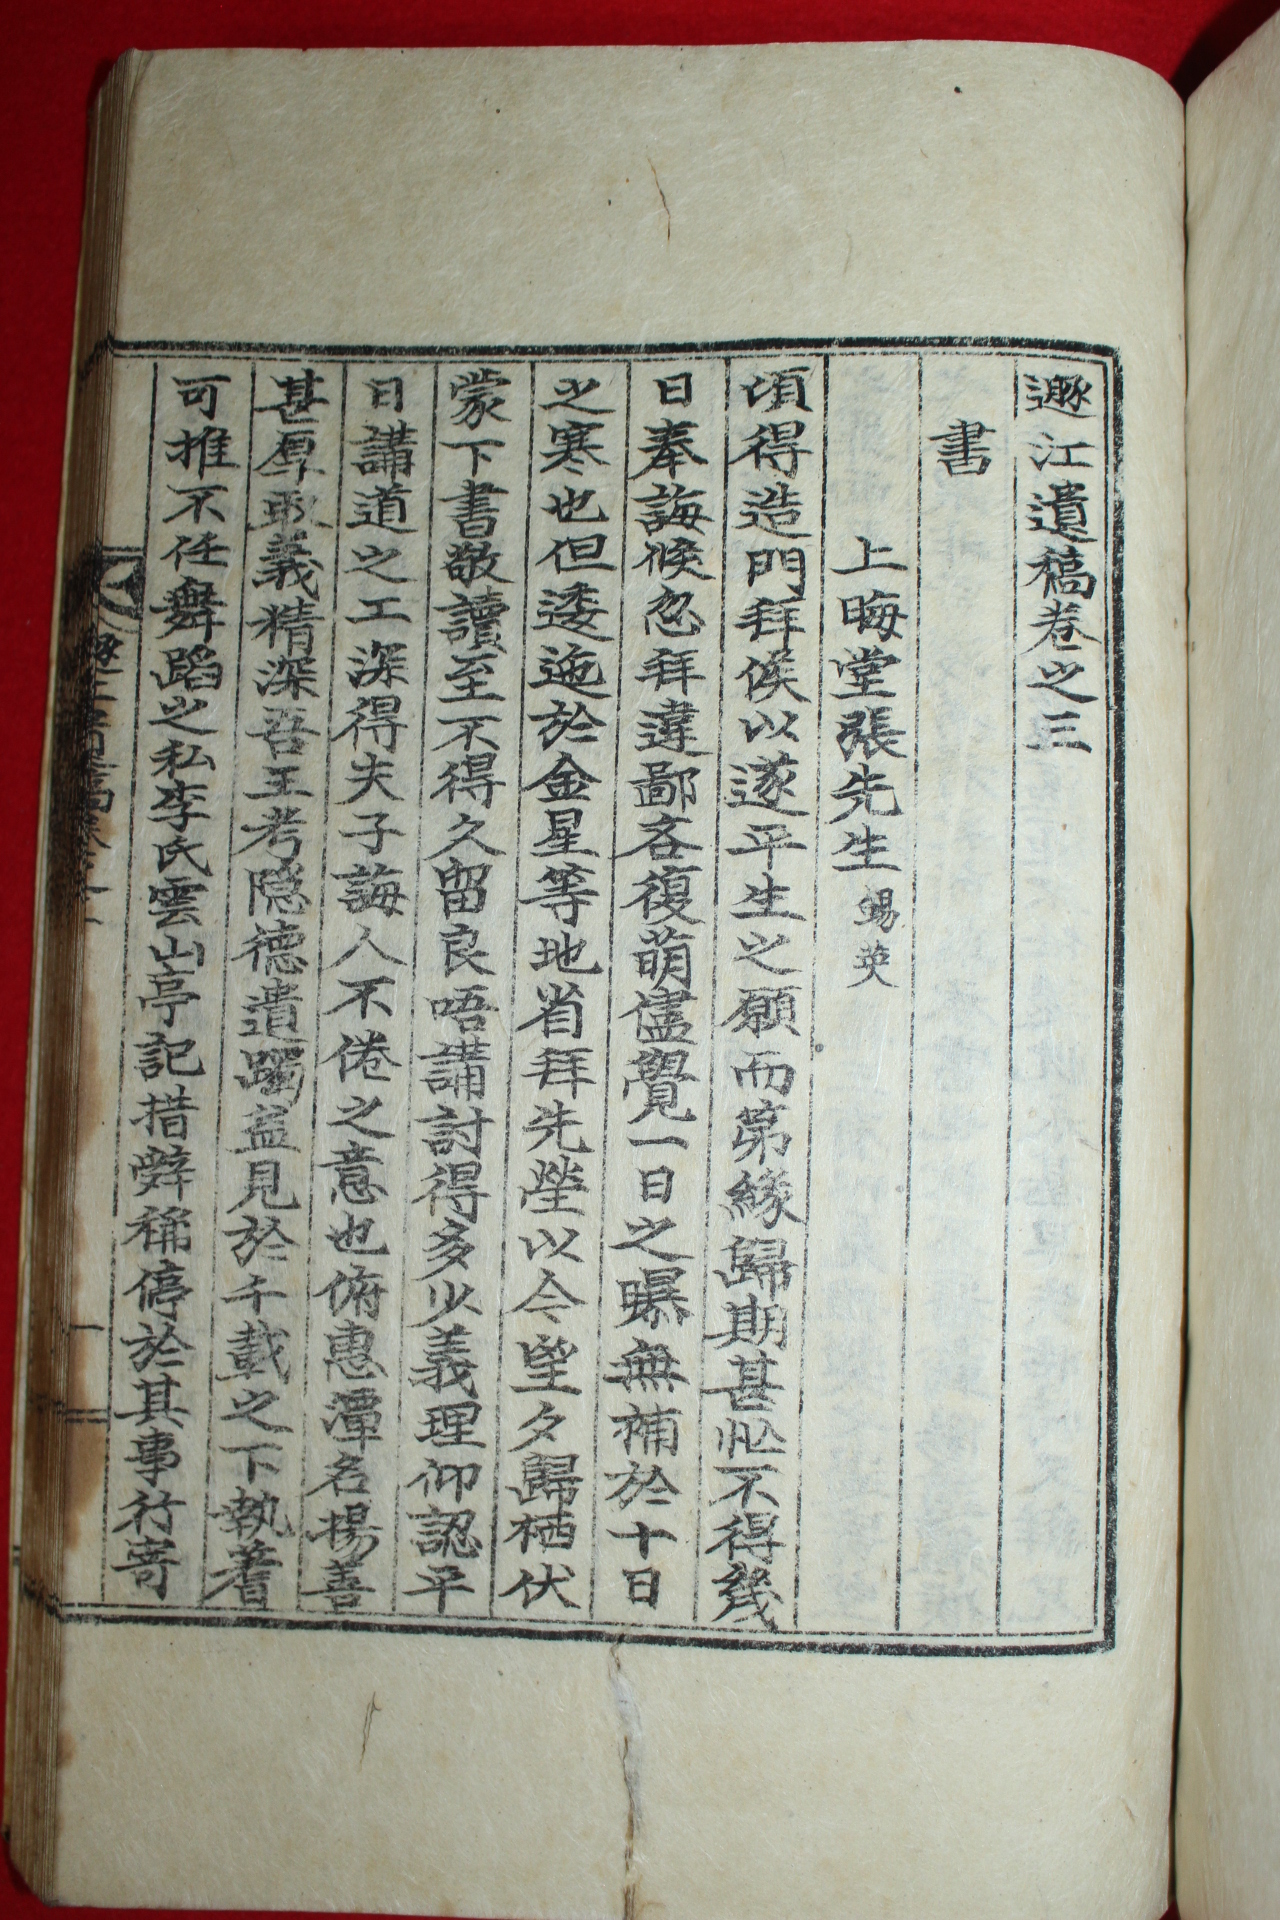 遯江遺稿卷之三
書
上晦堂張先生 錫英
頃得造門拜候以遂平生之願而第緣歸期甚忙不得幾
日奉誨候忽拜違鄙吝復萌儘覺一日之曝無補於十日
之寒也但逶迤於金星等地省拜先塋以今望夕歸栖伏
蒙下書敬讀至不得久留良唔講討得多少義理仰認平
日講道之工深得夫子誨人不倦之意也俯惠潭名揚善
甚厚取義精深吾王考隱德遺躅益見於千載之下執著
可推不任舞蹈之私李氏雲山亭記措辭稱停於其事行寄